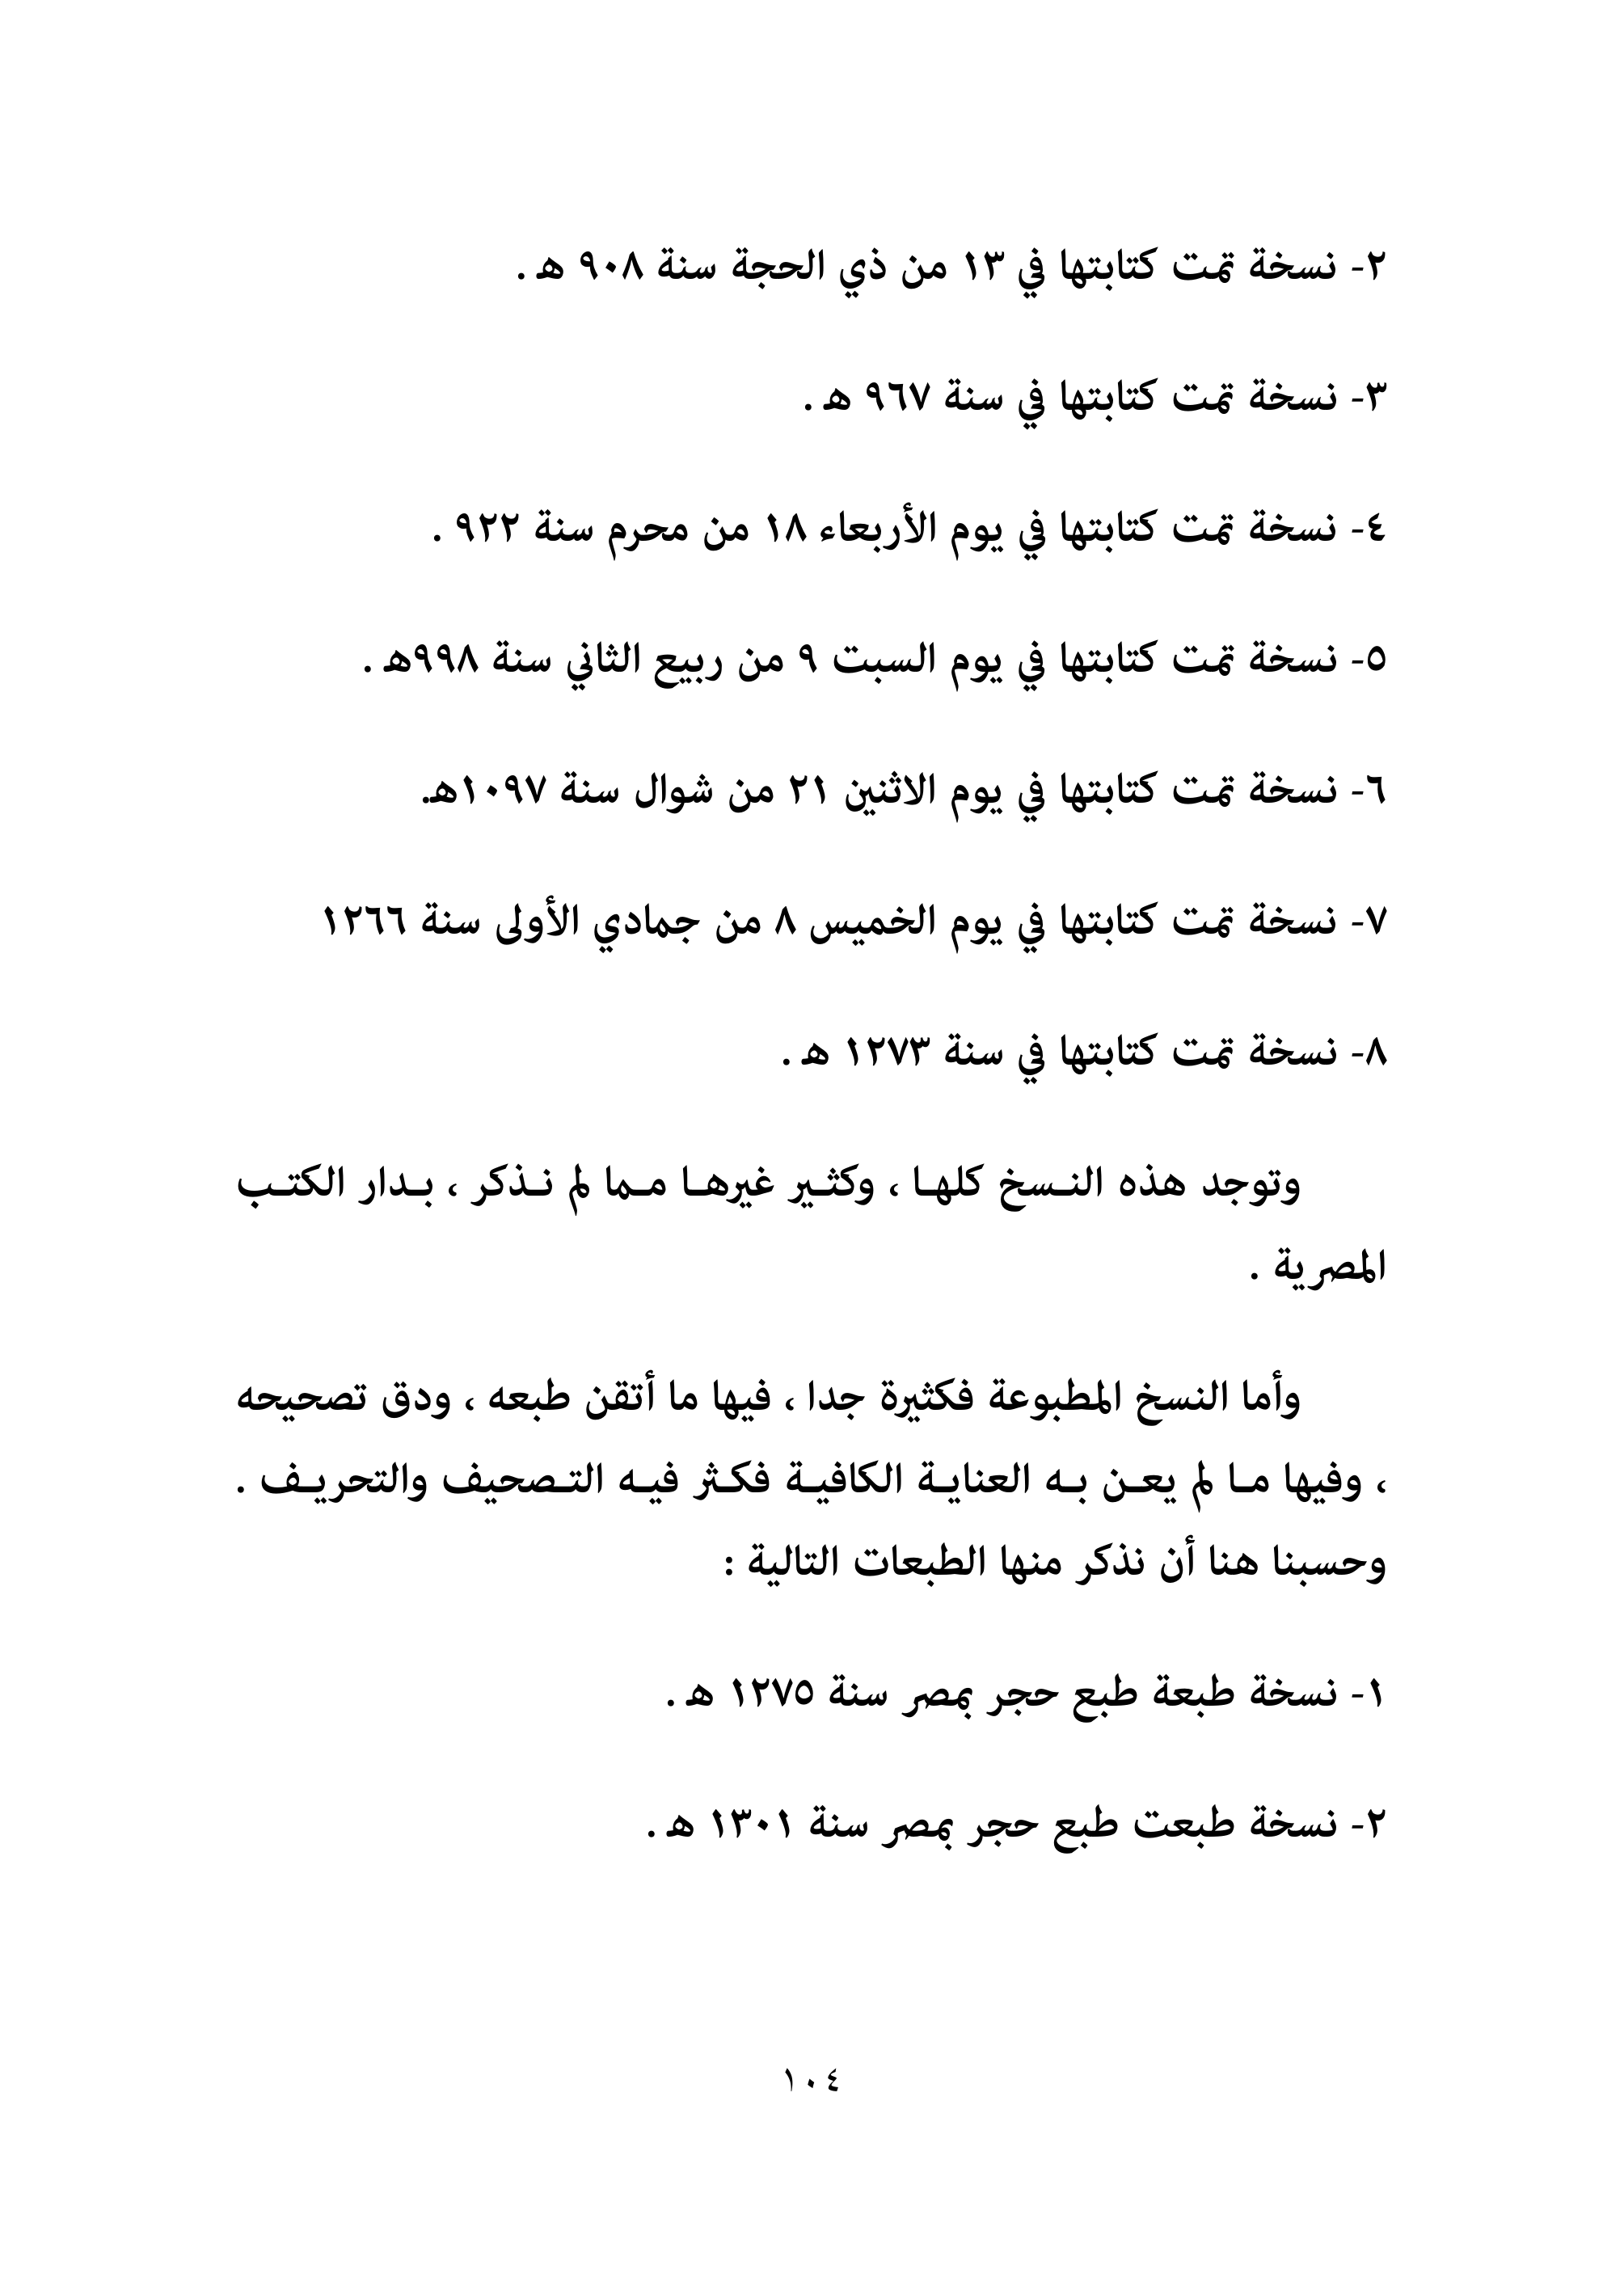 ٢- نسخة تمت كتابتها في ١٣ من ذي الحجة سنة ٩٠٨ هـ .
٣- نسخة تمت كتابتها في سنة ٩٦٧ هـ .
٤- نسخة تمت كتابتها في يوم الأربعاء ١٨ من محرم سنة ٩٢٢ .
٥- نسخة تمت كتابتها في يوم السبت ٩ من ربيع الثاني سنة ٩٩٨هـ .
٦- نسخة تمت كتابتها في يوم الاثنين ٢١ من شوال سنة ١٠٩٧هـ.
٧- نسخة تمت كتابتها في يوم الخميس ٨ من جمادي الأولى سنة ١٢٦٦
٨- نسخة تمت كتابتها في سنة ١٢٧٣ هـ .
وتوجد هذه النسخ كلها ، وكثير غيرها مما لم نذكر ، بدار الكتب
المصرية .
وأما النسخ المطبوعة فكثيرة جدا ، فيها ما أتقن طبعه ، ودق تصحيحه
، وفيها ما لم يعن به العناية الكافية فكثر فيه التصحيف والتحريف .
وحسبنا هنا أن نذكر منها الطبعات التالية :
١- نسخة طبعة طبع حجر بمصر سنة ١٢٧٥ هـ .
٢- نسخة طبعت طبع حجر بمصر سنة ١٣٠١ هـ .
١٠٤